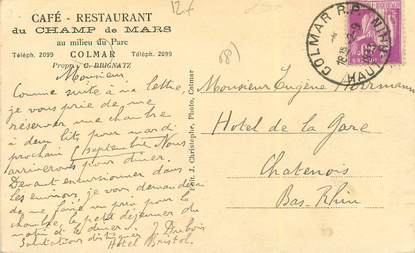 CAFÉ - RESTAURANT
du CHAMP de MARS
au milieu du Parc
Téléph. 2099 COLMAR Téléph. 2099
Propr. : C. BRIGNATZ
12f
(68)
Monsieur
Comme suite à ma lettre,
je vous prie de me
réserver une chambre
à deux lits pour mardi
prochain 6 septembre. Nous
arriverons pour dîner.
Devant excursionner dans
les environs, je vous demanderai
de me faire un prix pour la
chambre, le petit déjeuner du
matin et le dîner.
Salutations distinguées J. Dubois
Hôtel Bristol.
Edit. J. Christophe, Photo, Colmar
COLMAR R.P.
HAUT-RHIN
Monsieur Eugène Herrmann
Hotel de la Gare
Chatenois
Bas-Rhin